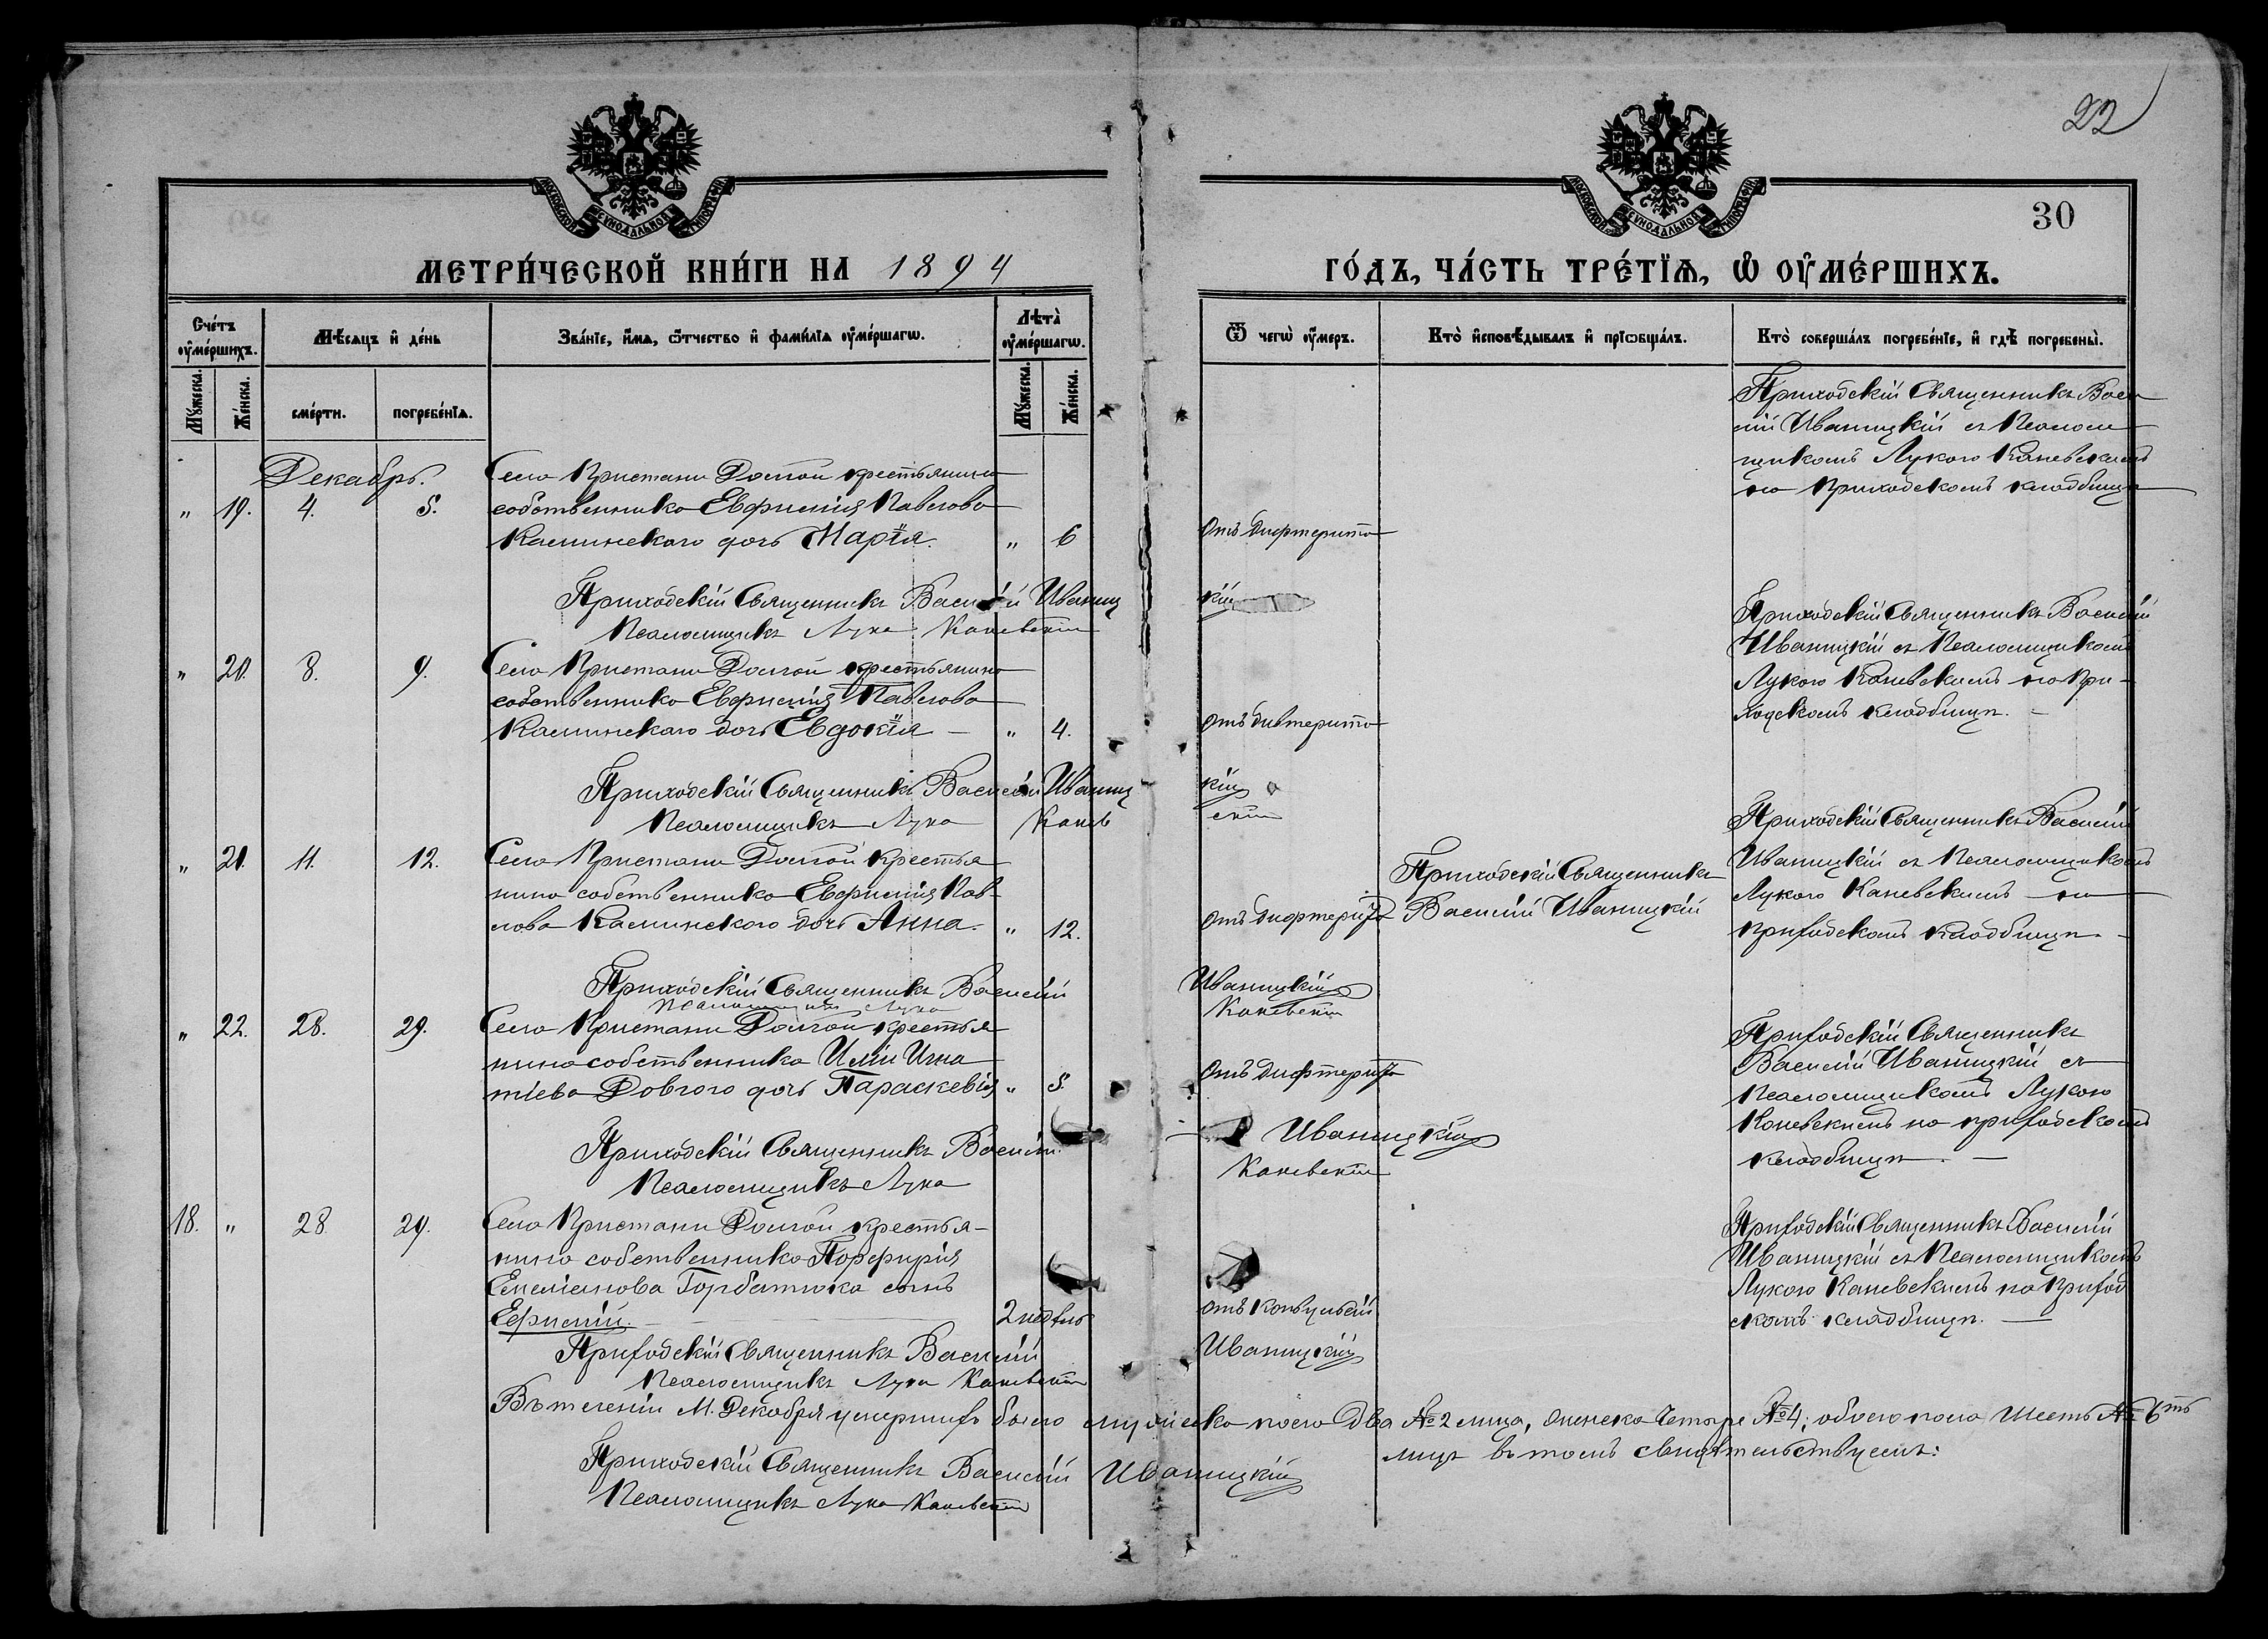 22
МОСКОВСКОЙ СѴНОДАЛЬНОЙ ТИПОГРАФІИ
МОСКОВСКОЙ СѴНОДАЛЬНОЙ ТИПОГРАФІИ
30
МЕТРИ́ЧЕСКОЙ КНИ́ГИ НА 1894
ГО́ДЪ, ЧА́СТЬ ТРЕ́ТІѦ, Ѡ ОУ҆МЕ́РШИХЪ.
Сче́тъ оу҆ме́ршихъ.
Мѣ́сѧцъ и҆ де́нь
Зва́нїе, и҆́мѧ, ѻ҆́тчество и҆ фами́лїѧ оу҆ме́ршагѡ.
Лѣ́та̀ оу҆ме́ршагѡ.
Мꙋ́жеска.
Же́нска.
сме́рти.
погребе́нїѧ.
Мꙋ́жеска.
Же́нска.
Ѿ чегѡ̀ оу҆́меръ.
Кто̀ и҆сповѣ́дывалъ и҆ прїѡбща́лъ.
Кто̀ соверша́лъ погребе́нїе, и҆ гдѣ̀ погребены̀.
Декабрь.
" 19. 4. 5.
Села Пристани Долгой крестьянина
собственника Евфимія Павлова
Калинскаго дочь Марія. " 6
Отъ дифтерита
Приходскій Священникъ Васи
лій Иваницкій съ Псалом
щикомъ Лукою Каневскимъ
на Приходскомъ кладбищѣ
Приходскій Священникъ Василій Иваниц кій
Псаломщикъ Лука Каневскій
" 20. 8. 9.
Села Пристани Долгой крестьянина
собственника Евфимія Павлова
Калинскаго дочь Евдокія – " 4.
Отъ дифтерита
Приходскій Священникъ Василій
Иваницкій съ Псаломщикомъ
Лукою Каневскимъ на При-
ходскомъ кладбищѣ. –
Приходскій Священникъ Василій Иваниц кій
Псаломщикъ Лука Канев скій
" 21. 11. 12.
Села Пристани Долгой крестья
нина собственника Евфимія Пав
лова Калинскаго дочь Анна. " 12.
Отъ дифтерита
Приходскій Священникъ
Василій Иваницкій
Приходскій Священникъ Василій
Иваницкій съ Псаломщикомъ
Лукою Каневскимъ на
приходскомъ кладбищѣ. –
Приходскій Священникъ Василій Иваницкій
Псаломщикъ Лука Каневскій
" 22. 28. 29.
Села Пристани Долгой крестья
нина собственника Иліи Игна
тіева Довгого дочь Параскевія " 5.
Отъ дифтерита
Приходскій Священникъ
Василій Иваницкій съ
Псаломщикомъ Лукою
Каневскимъ на приходскомъ
кладбищѣ. –
Приходскій Священникъ Василій Иваницкій
Псаломщикъ Лука Каневскій
18. " 28. 29.
Села Пристани Долгой крестья-
нина собственника Порфирія
Емеліанова Горбатюка сынъ
Ефимій. – 2 недѣль
отъ конвульсій
Приходскій Священникъ Василій
Иваницкій съ Псаломщикомъ
Лукою Каневскимъ на Приход
скомъ кладбищѣ. –
Приходскій Священникъ Василій Иваницкій
Псаломщикъ Лука Каневскій
Въ теченіи М. Декабря умершихъ было мужеска пола два № 2 лица, женска Четыре № 4; обоего пола Шесть № 6ть
лицъ въ томъ свидѣтельствуемъ:
Приходскій Священникъ Василій Иваницкій
Псаломщикъ Лука Каневскій